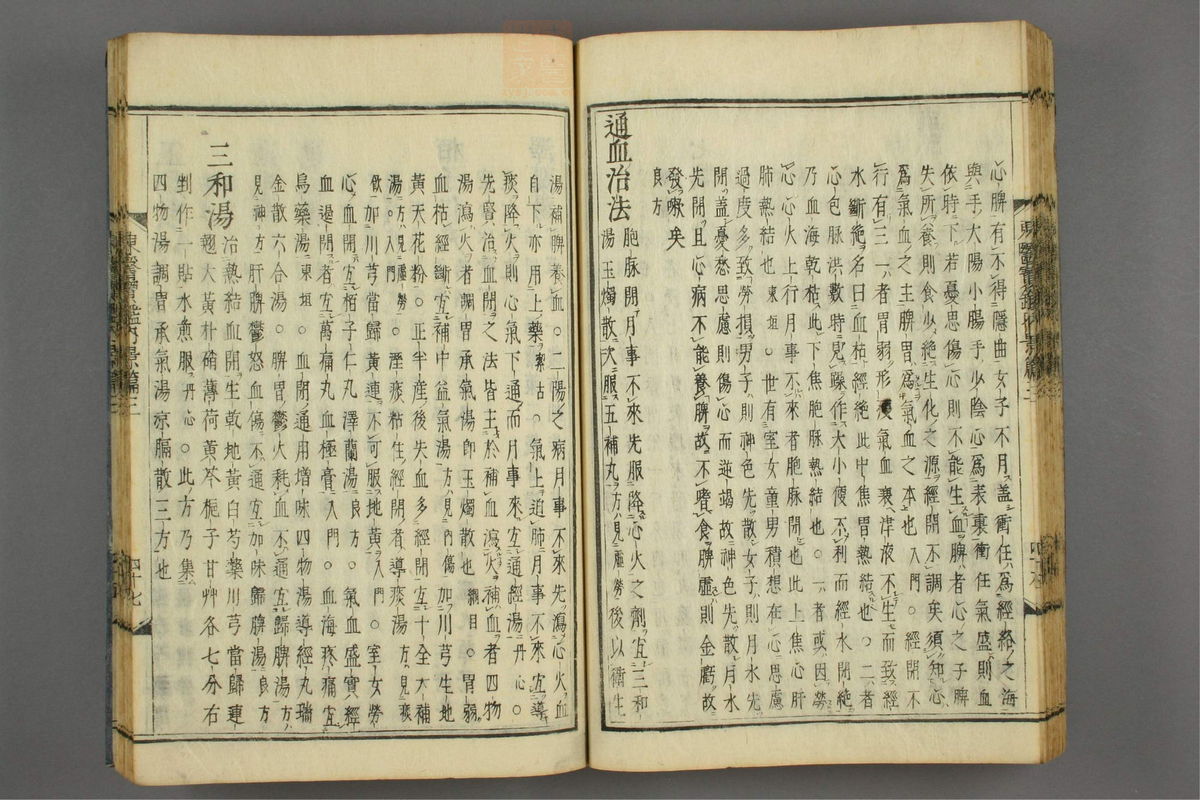 心脾有不得隱曲女子不月盖衝任為經絡之海
與手大陽小腸手少陰心為表裏衝任氣盛則血
依時下若憂思傷心則不能生血脾者心之子脾
失所養則食少絶生化之源經閉不調矣須知心
為氣血之主脾胃為氣血之本也入門○經閉不
行有三一者胃弱形瘦氣血衰津液不生而致經
水斷絶名曰血枯經絶此中焦胃熱結也○二者
心包脉洪數時見躁作大小便不利而經水閉絶
乃血海乾枯此下焦胞脉熱結也○一者或因勞
心心火上行月事不來者胞脉閉也此上焦心肝
肺熱結也東垣○世有室女童男積想在心思慮
過度多致勞損男子則神色先散女子則月水先
閉盖憂愁思慮則傷心而逆竭故神色先散月水
先閉且心病不能養脾故不嗜食脾虛則金虧故
發嗽矣良方
通血治法胞脉閉月事不來先服降心火之劑宜三和
湯玉燭散次服五補丸方見虛勞後以衛生
湯補脾養血○二陽之病月事不來先瀉心火血
自下亦用上藥絜古○氣上迫肺月事不來宜導
痰降火則心氣下通而月事來宜通經湯丹心○
先賢治血閉之法皆主於補血瀉火補血者四物
湯瀉火者調胃承氣湯即玉燭散也綱目○胃弱
血枯經斷宜補中益氣湯方見內傷加川芎生地
黃天花粉○正半產後失血多經閉宜十全大補
湯方見虛勞入門○溼痰粘生經閉者導痰湯方見痰
飮加川芎當歸黃連不可服地黃入門○室女勞
心血閉宜栢子仁丸澤蘭湯良方○氣血盛實經
血遏閉者宜萬痛丸血極膏入門○血海疼痛宜
烏藥湯東垣○血閉通用增味四物湯導經丸瑞
金散六合湯○脾胃鬱火耗血不通宜歸脾湯方
見神方肝脾鬱怒血傷不通宜加味歸脾湯良方
三和湯治熱結血閉生乾地黃白芍藥川芎當歸連
翹大黃朴硝薄荷黃芩梔子甘艸各七分右
剉作一貼水煎服丹心○此方乃集
四物湯調胃承氣湯凉膈散三方也
東醫寶鑑內景篇三
四十七